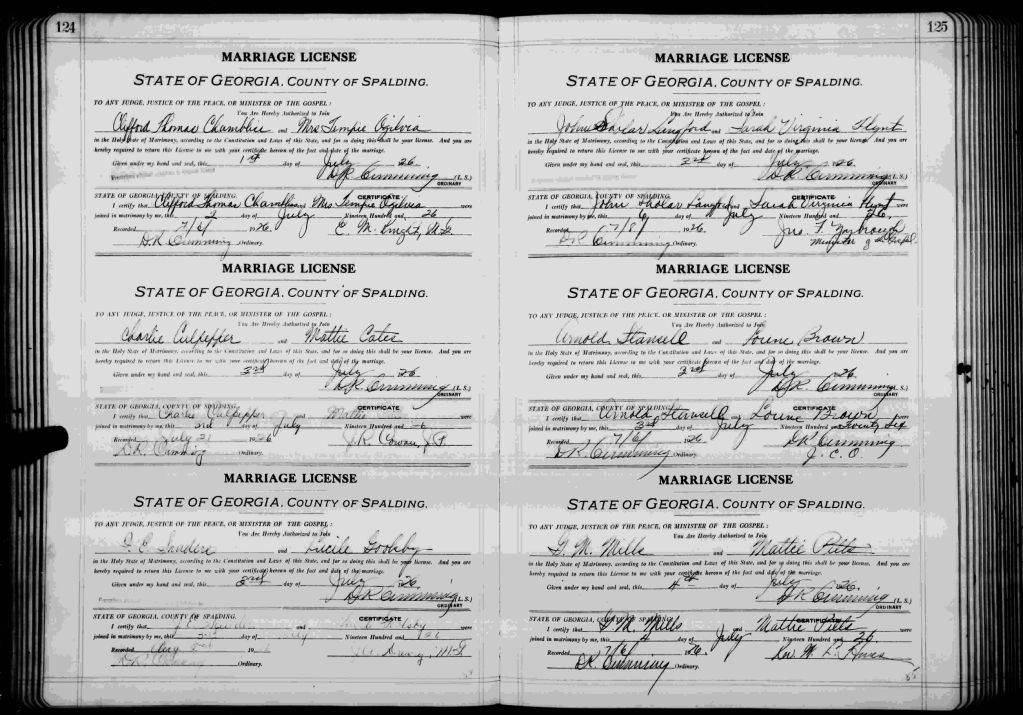 124
MARRIAGE LICENSE
STATE OF GEORGIA, COUNTY OF SPALDING.
TO ANY JUDGE, JUSTICE OF THE PEACE, OR MINISTER OF THE GOSPEL:
You Are Hereby Authorized to Join
Clifford Thomas Chamblin and Mrs Tempie Ogilvia
in the Holy State of Matrimony, according to the Constitution and Laws of this State, and for so doing this shall be your license. And you are
hereby required to return this License to me with your certificate hereon of the fact and date of the marriage.
Given under my hand and seal, this 1st day of July 26
D.R. Cumming (L. S.)
ORDINARY
STATE OF GEORGIA, COUNTY OF SPALDING. CERTIFICATE
I certify that Clifford Thomas Chamblin and Mrs Tempie Ogilvia were
joined in matrimony by me, this 2 day of July Nineteen Hundred and 26
Recorded 7/6/ 1926. E. M.
D.R. Cumming Ordinary.
MARRIAGE LICENSE
STATE OF GEORGIA, COUNTY OF SPALDING.
TO ANY JUDGE, JUSTICE OF THE PEACE, OR MINISTER OF THE GOSPEL:
You Are Hereby Authorized to Join
Charlie Culpepper and Mattie Cates
in the Holy State of Matrimony, according to the Constitution and Laws of this State, and for so doing this shall be your license. And you are
hereby required to return this License to me with your certificate hereon of the fact and date of the marriage.
Given under my hand and seal, this 3rd day of July 26
D.R. Cumming (L. S.)
ORDINARY
STATE OF GEORGIA, COUNTY OF SPALDING. CERTIFICATE
I certify that Charlie Culpepper and Mattie were
joined in matrimony by me, this 3rd day of July Nineteen Hundred and
Recorded July 21 1926 J.R. Cowan, J.P.
D.R. Cumming Ordinary.
MARRIAGE LICENSE
STATE OF GEORGIA, COUNTY OF SPALDING.
TO ANY JUDGE, JUSTICE OF THE PEACE, OR MINISTER OF THE GOSPEL:
You Are Hereby Authorized to Join
E. Sanders and Lucile Goolsby
in the Holy State of Matrimony, according to the Constitution and Laws of this State, and for so doing this shall be your license. And you are
hereby required to return this License to me with your certificate hereon of the fact and date of the marriage.
Given under my hand and seal, this 3rd day of July 26
D.R. Cumming (L. S.)
ORDINARY
STATE OF GEORGIA, COUNTY OF SPALDING. CERTIFICATE
I certify that and were
joined in matrimony by me, this day of July Nineteen Hundred and
Recorded 19 M.G.
D.R. Cumming Ordinary.
125
MARRIAGE LICENSE
STATE OF GEORGIA, COUNTY OF SPALDING.
TO ANY JUDGE, JUSTICE OF THE PEACE, OR MINISTER OF THE GOSPEL:
You Are Hereby Authorized to Join
John Langford and Sarah Virginia Flynt
in the Holy State of Matrimony, according to the Constitution and Laws of this State, and for so doing this shall be your license. And you are
hereby required to return this License to me with your certificate hereon of the fact and date of the marriage.
Given under my hand and seal, this 3rd day of July 26
D.R. Cumming (L. S.)
ORDINARY
STATE OF GEORGIA, COUNTY OF SPALDING. CERTIFICATE
I certify that John Langford and Sarah Virginia Flynt were
joined in matrimony by me, this 6 day of July Nineteen Hundred and 26,
Recorded 7/8/ 1926. Jno. F. Yarbrough
D.R. Cumming Ordinary. Minister of the Gospel
MARRIAGE LICENSE
STATE OF GEORGIA, COUNTY OF SPALDING.
TO ANY JUDGE, JUSTICE OF THE PEACE, OR MINISTER OF THE GOSPEL:
You Are Hereby Authorized to Join
Arnold Stansell and Louine Brown
in the Holy State of Matrimony, according to the Constitution and Laws of this State, and for so doing this shall be your license. And you are
hereby required to return this License to me with your certificate hereon of the fact and date of the marriage.
Given under my hand and seal, this 3rd day of July 26
D.R. Cumming (L. S.)
ORDINARY
STATE OF GEORGIA, COUNTY OF SPALDING. CERTIFICATE
I certify that Arnold Stansell and Louine Brown were
joined in matrimony by me, this 3rd day of July Nineteen Hundred and Twenty Six
Recorded 7/6/ 1926 D.R. Cumming
D.R. Cumming Ordinary. J. C. O.
MARRIAGE LICENSE
STATE OF GEORGIA, COUNTY OF SPALDING.
TO ANY JUDGE, JUSTICE OF THE PEACE, OR MINISTER OF THE GOSPEL:
You Are Hereby Authorized to Join
G. M. Mills and Mattie Pitts
in the Holy State of Matrimony, according to the Constitution and Laws of this State, and for so doing this shall be your license. And you are
hereby required to return this License to me with your certificate hereon of the fact and date of the marriage.
Given under my hand and seal, this 4th day of July 26
D.R. Cumming (L. S.)
ORDINARY
STATE OF GEORGIA, COUNTY OF SPALDING. CERTIFICATE
I certify that G. M. Mills and Mattie Pitts were
joined in matrimony by me, this 4 day of July Nineteen Hundred and 26
Recorded 7/6/ 1926, Rev. M. L.
D.R. Cumming Ordinary.